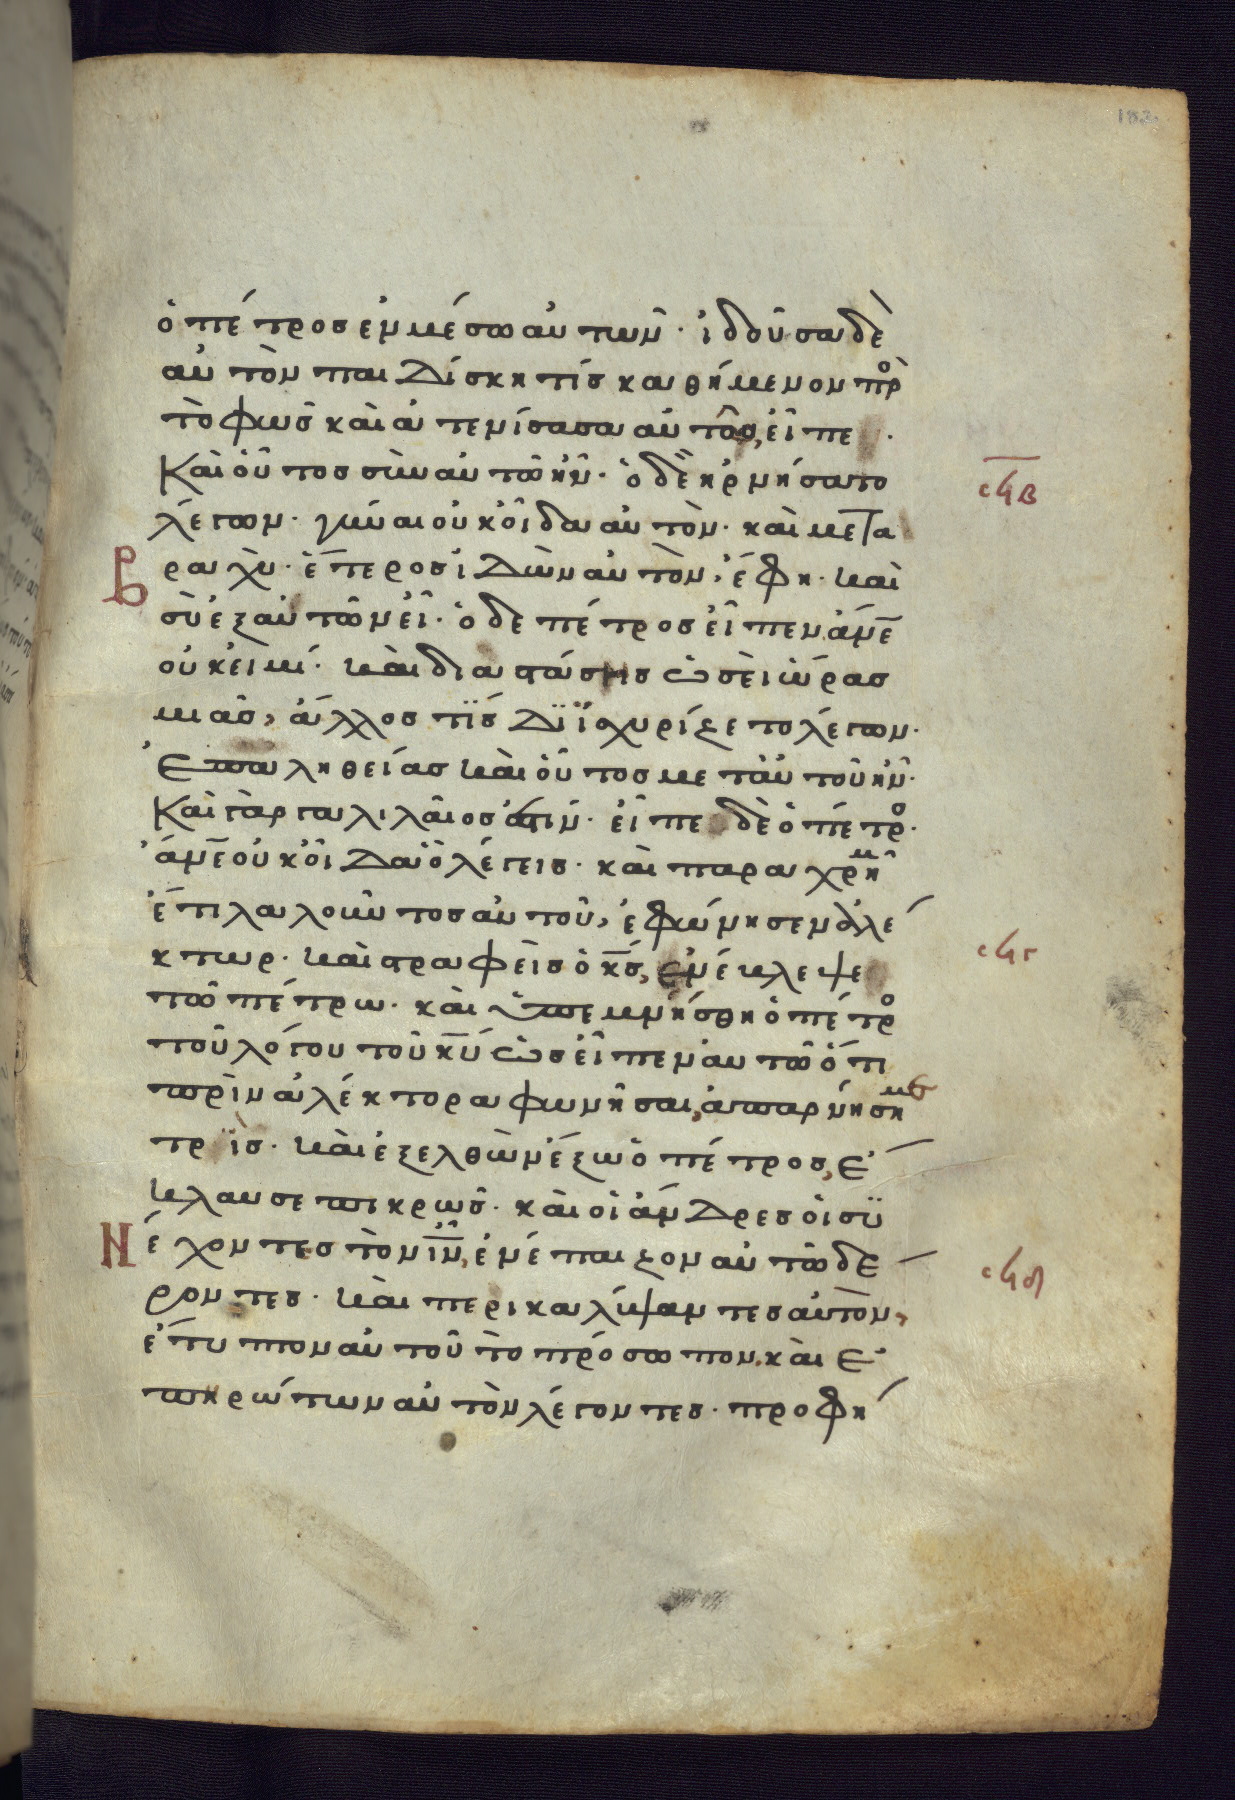 182
ὁ πέτρος ἐν μέσω αὐτων̑· ἰδοῦσα δὲ
αὐτὸν παιδίσκη τίς καθήμενον πρὸ
τὸ φως̑ καὶ ἀτενίσασα αὐτῶ, εἶπε·
Καὶ οὗτος σὺν αὐτῶ ἦν· ὁ δὲ ἠρνήσατο
λέγων· γύναι οὐκ οἶδα αὐτὸν· καὶ μετα
βραχὺ· ἕτερος ἰδὼν αὐτὸν, ἔφη· καὶ
σὺ ἐξ αὐτῶν εἶ· ὁ δὲ πέτρος εἶπεν ἄνε̅
οὐκ εἰμί· καὶ διαστάσης ὡσεὶ ὥρας
μιᾶς, ἄλλος τϊς διϊσχυρίζετο λέγων·
Ἐπαληθείας καὶ οὗτος μετ αὐτοῦ ἦν·
Καὶ γὰρ γαλιλαῖος ἐστιν· εἶπε δὲ ὁ πέτρο·
ἄνε̅ οὐκ οἶδα ὃ λέγεις· καὶ παραχρημ
ἔτι λαλοῦντος αὐτοῦ, ἐφώνησεν ἀλέ
κτωρ· καὶ στραφεὶς ὁ κ̅ς, ἐνέβλεψε
τῶ πέτρω· καὶ ὑπεμνήσθη ὁ πέτρο
τοῦ λόγου τοῦ κ̅υ ὡς εἶπεν αὐτῶ ὅτι
πρὶν ἀλέκτορα φωνῆσαι, ἀπαρνήση με
τρϊς· καὶ ἐξελθὼν ἔξω ὁ πέτρος, ἔ
κλαυσε πικρως̑· καὶ οἱ ἄνδρες οἱ συ
Νέχοντες τὸν ι̅ν, ἐνέπαιζον αὐτῶ δέ
ροντες· καὶ περικαλύψαντες αὐτὸν,
ἔτυπτον αὐτοῦ τὸ πρόσωπον. καὶ ἐ
πηρώτων αὐτὸν λέγοντες· προφή
σϟβ
σϟγ
σϟδ